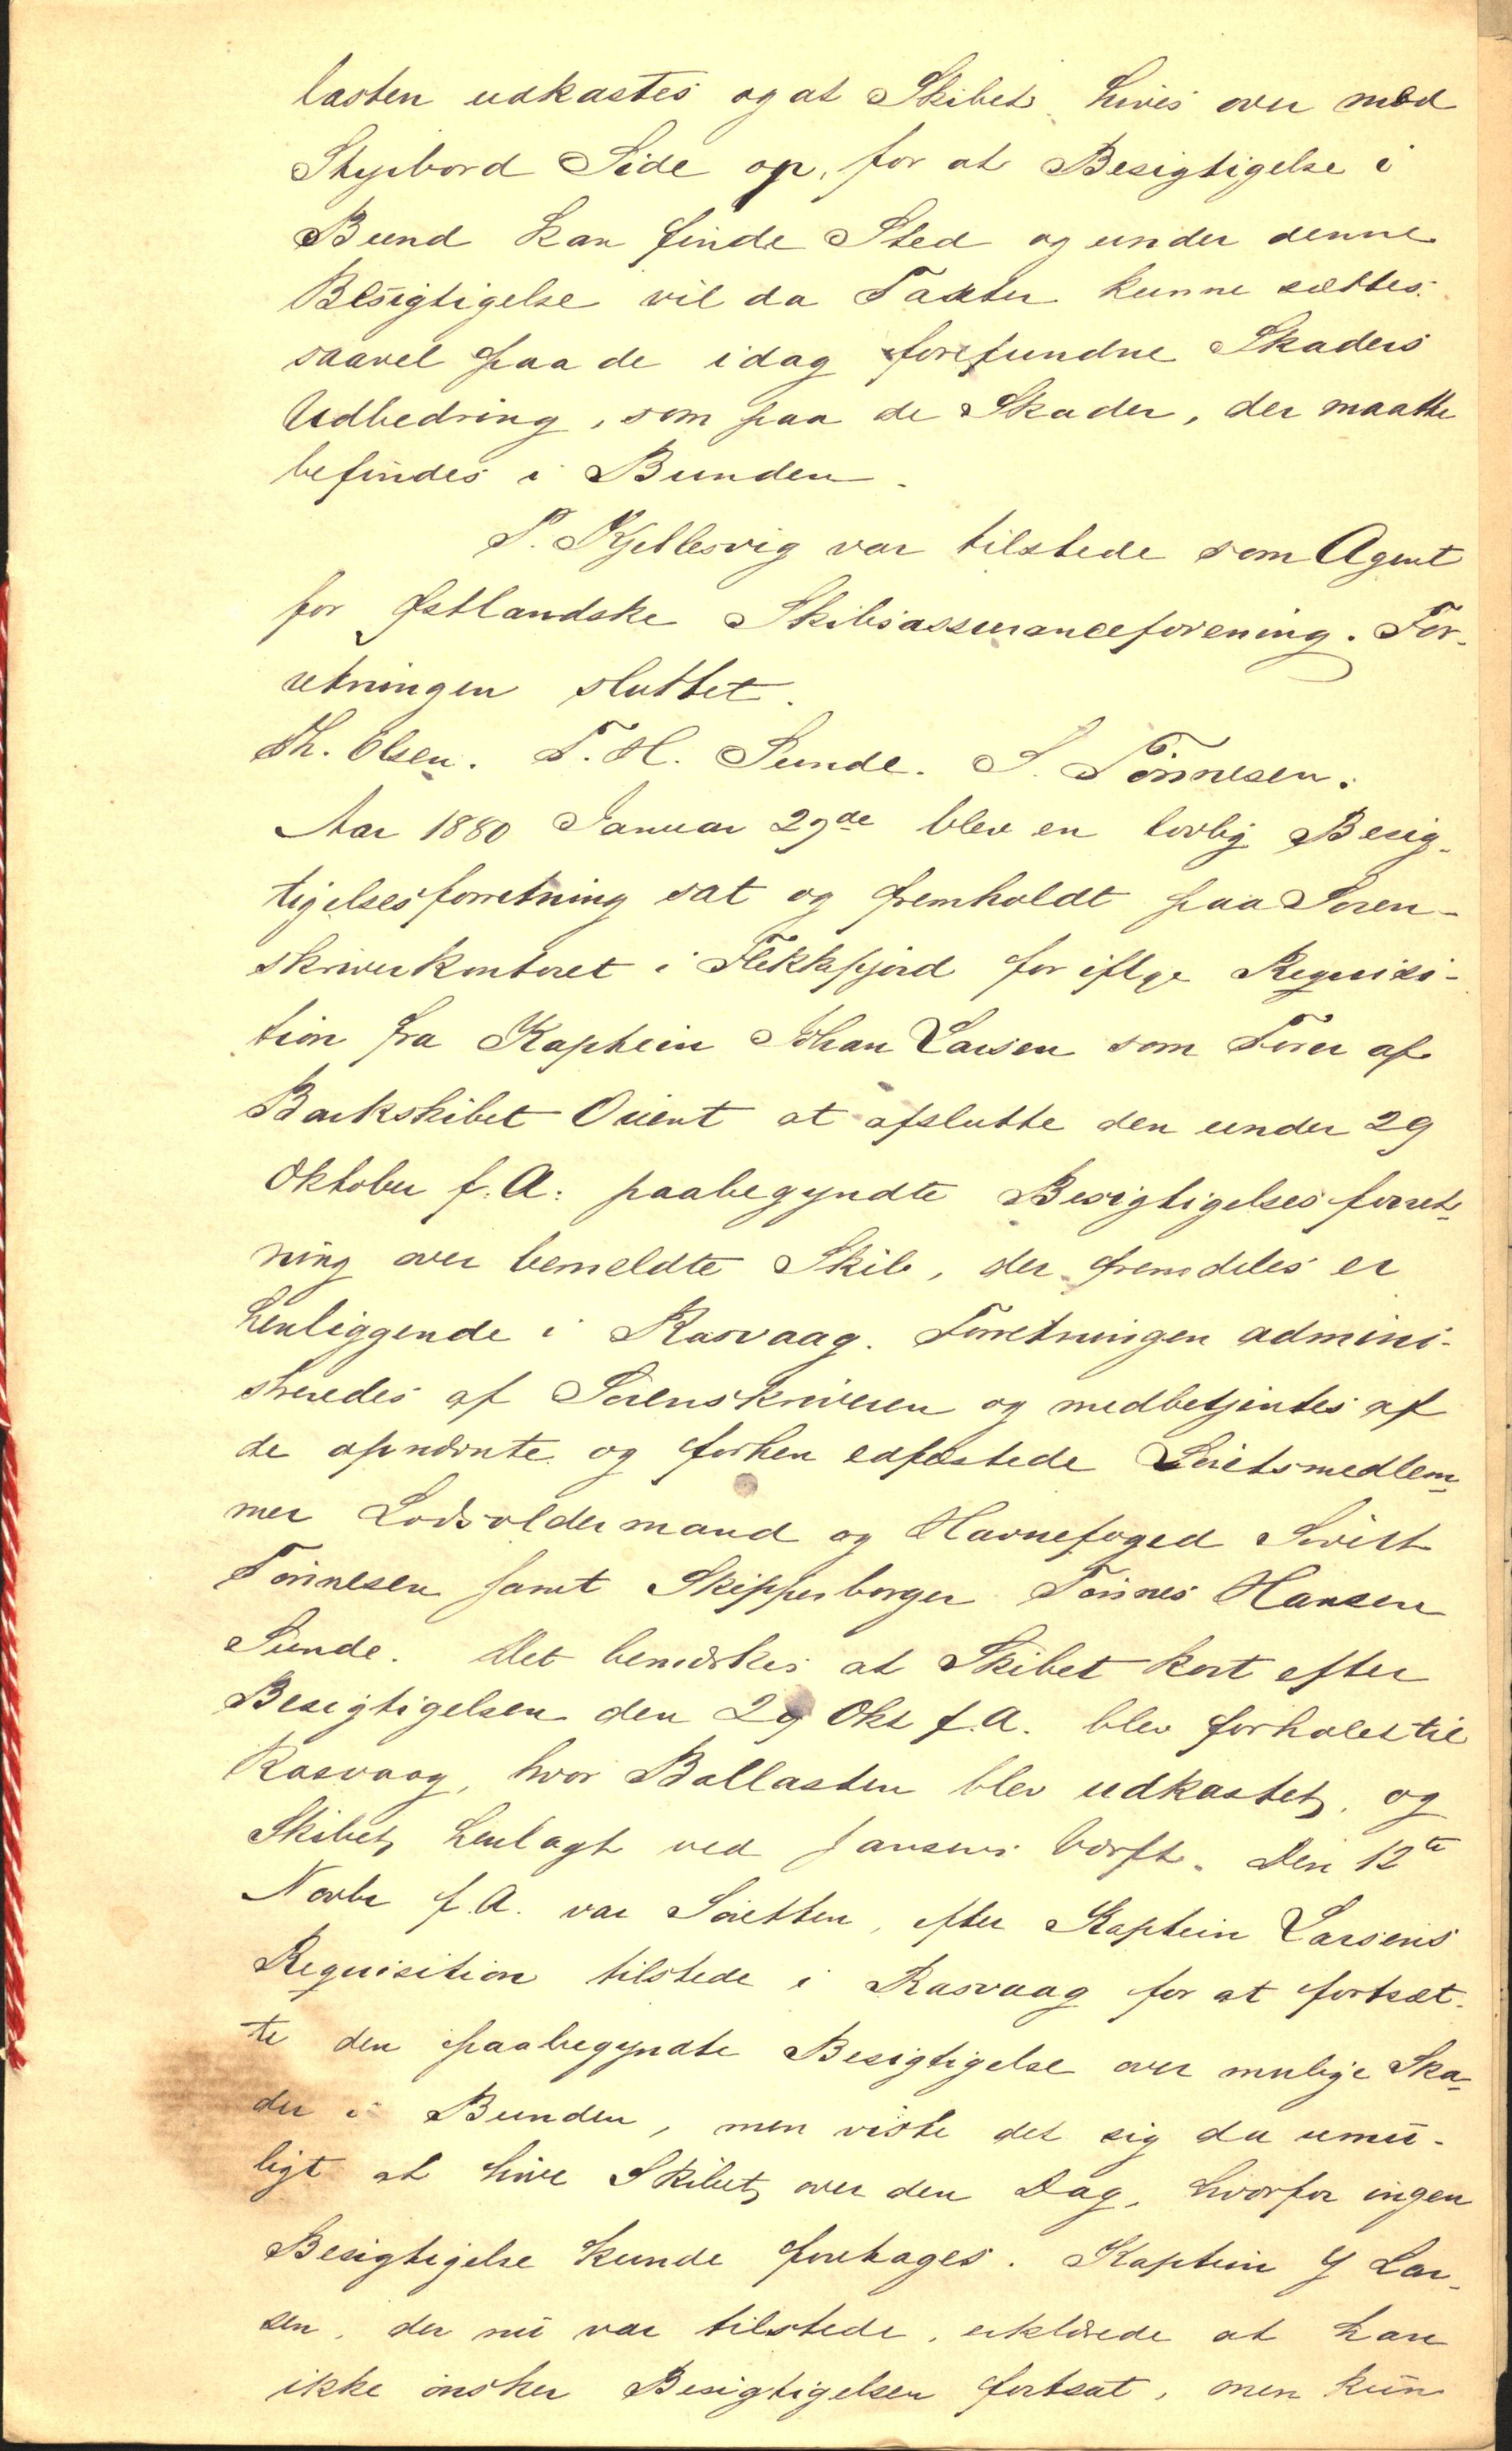 lasten udkastes og at Skibet hives over med
Styrbord Side op, for at Besigtigelse i
Bund kan finde Sted og under denne
Besigtigelse vil da Taxter kunne sættes
saavel paa de idag forefundne Skaders
Udbedring, som paa de Skader, der maatte
befindes i Bunden.
P. Kjellesvig var tilstede som Agent
for Østlandske Skibsassuranceforening. For-
retningen sluttet.
Th. Olsen. T. H. Sunde. S. Tönnesen.
Aar 1880 Januar 29de blev en lovlig Besig-
tigelsesforretning sat og fremholdt paa Soren-
skriverkontoret i Flekkefjord for iflge Requisi-
tion fra Kaptein Johan Larsen som Fører af
Barkskibet Orient at afslutte den under 29
Oktober f. A. paabegyndte Besigtigelsesforret-
ning over bemeldte Skib, der fremdeles er
henliggende i Rasvaag. Forretningen admini-
streredes af Sorenskriveren og medbetjentes af
de opnævnte og forhen edfæstede Søretsmedlem-
mer Lodsoldermand og Havnefoged Sivert
Tönnesen samt Skipperborger Tönnes Hansen
Sunde. Det bemærkes at Skibet kort efter
Besigtigelsen den 29 Okt f. A. blev forhalet til
Rasvaag, hvor Ballasten blev udkastet, og
Skibet henlagt ved Jansens Værft. Den 12te
Novbr f. A. var Søretten, efter Kaptein Larsens
Requisition tilstede i Rasvaag for at fortsæt-
te den paabegyndte Besigtigelse over mulige Ska-
der i Bunden, men viste det sig da umu-
ligt at hive Skibet over den Dag, hvorfor ingen
Besigtigelse kunde foretages. Kaptein J Lar-
sen, der nu var tilstede, erklærede at han
ikke ønsker Besigtigelsen fortsat, men kun